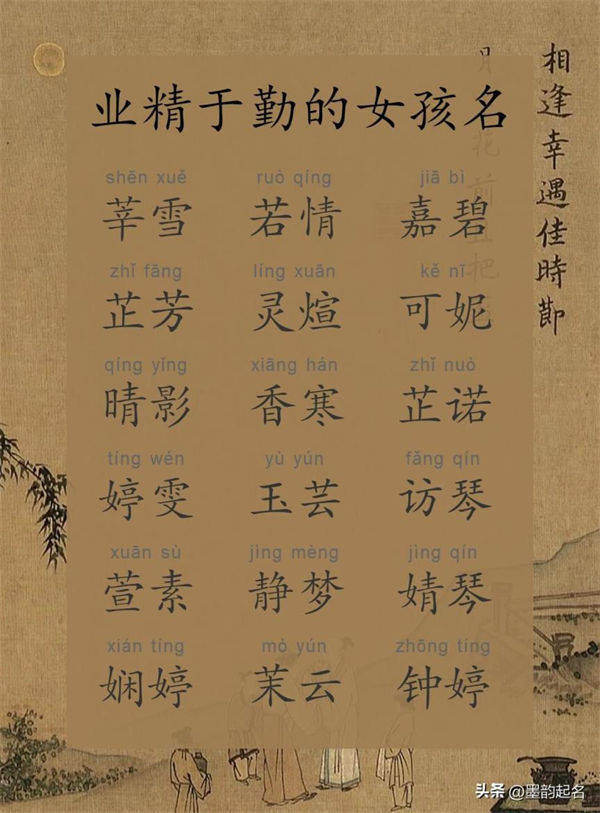 业精于勤的女孩名
shēn xuě ruò qíng jiā bì
莘雪 若情 嘉碧
zhǐ fāng líng xuān kě nī
芷芳 灵煊 可妮
qíng yǐng xiāng hán zhǐ nuò
晴影 香寒 芷诺
tíng wén yù yún fǎng qín
婷雯 玉芸 访琴
xuān sù jìng mèng jìng qín
萱素 静梦 婧琴
xián tíng mò yún zhōng tíng
娴婷 茉云 钟婷
相逢幸遇佳時節
月 花前 把
头条 @墨韵起名